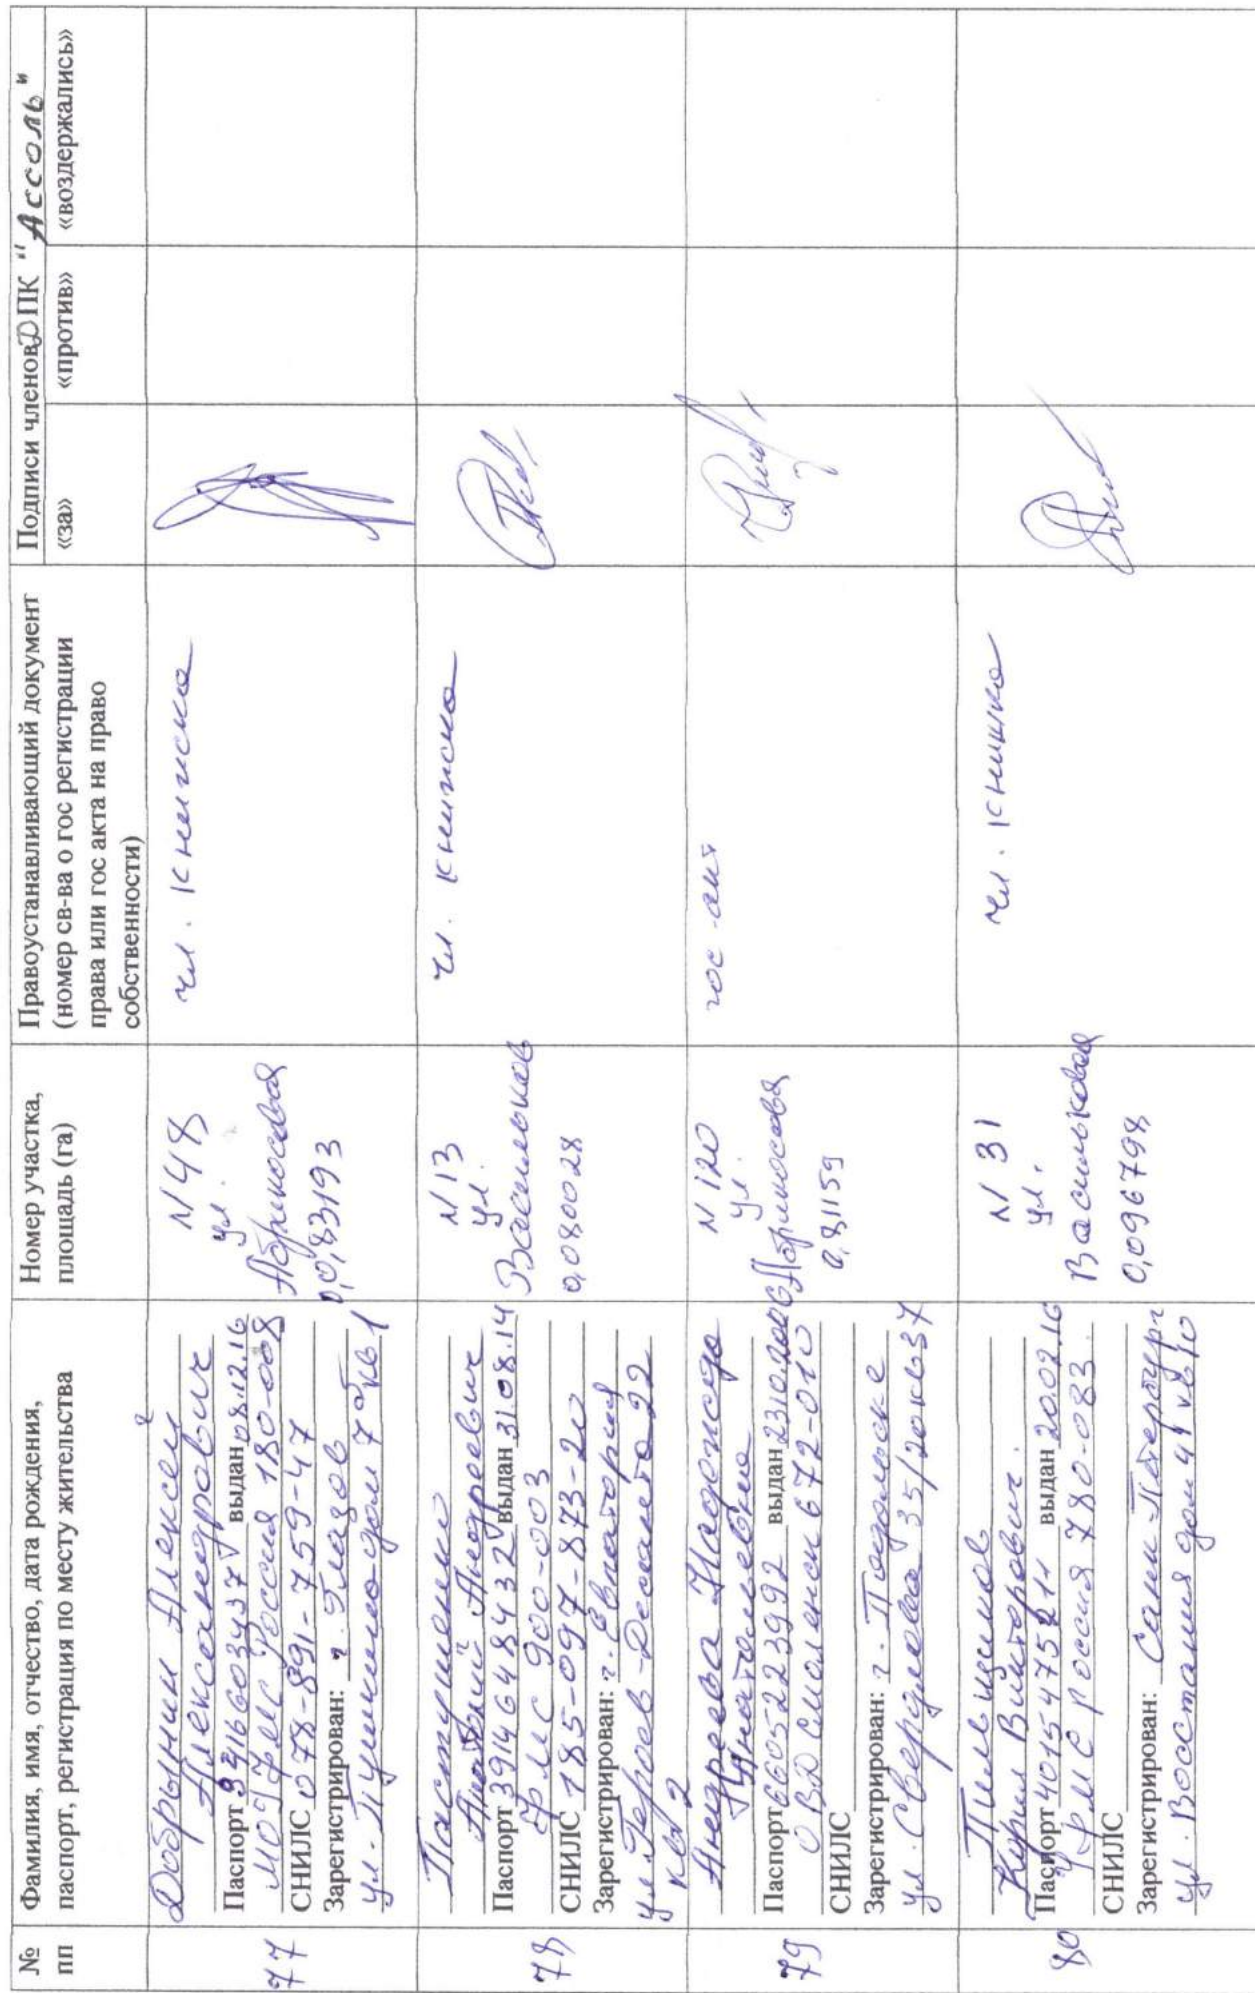 № пп
Фамилия, имя, отчество, дата рождения,
паспорт, регистрация по месту жительства
Номер участка,
площадь (га)
Правоустанавливающий документ
(номер св-ва о гос регистрации
права или гос акта на право
собственности)
Подписи членов ДПК "Ассоль"
«за»
«против»
«воздержались»
77
Добрынин Алексей
Александрович
Паспорт 9416603437 выдан 08.12.16
МО УФМС Россия 180-008
СНИЛС 078-891-759-47
Зарегистрирован: г. Глазов
ул. Пушкина дом 7 кв 1
N 48
ул.
Абрикосовая
0,083193
чл. книжка
78
Пастушенко
Андреевич
Паспорт 3914648432 выдан 31.08.14
ФМС 900-003
СНИЛС 185-097-873-20
Зарегистрирован: г. Евпатория
ул. Героев-Десанта 22
кв 2
N 13
ул.
0,080028
чл. книжка
79
Андреева Надежда
Анатольевна
Паспорт 6605223992 выдан 23.10.2006
ОВД Смоленск 672-010
СНИЛС
Зарегистрирован: г. Подольск
ул. Свердлова 35/20 кв 37
N 120
ул.
Абрикосовая
0,81159
гос-акт
80
Пильщиков
Кирил Викторович.
Паспорт 4015475211 выдан 20.02.16
УФМС Россия 780-083
СНИЛС
Зарегистрирован: Санк-Петербург
ул. Восстания дом 41 кв 10
N 31
ул.
Васильковая
0,096798
чл. книжка